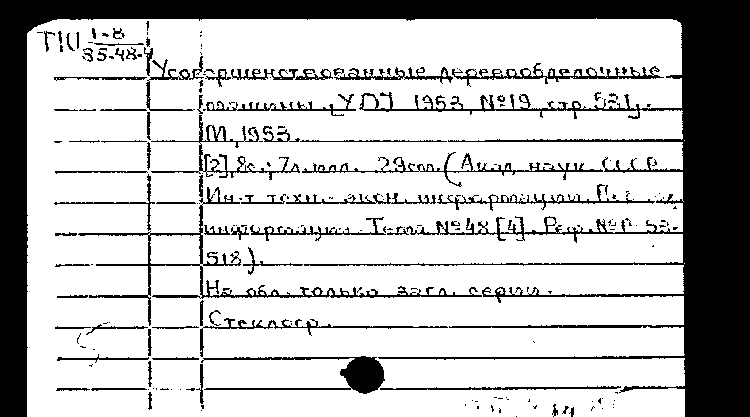 ТЮ 1-8
85-48-4
Усовершенствованные деревообделочные
машины. [УДЈ 1953, №19, стр. 531].
М., 1953.
[2], 8с.; 7л. илл. 29см. (Акад. наук СССР
Ин-т техн.-экон. информации.
информация Тема №48 [4]. Реф. №П-53-
518).
На обл. только загл. серии.
Стеклогр.